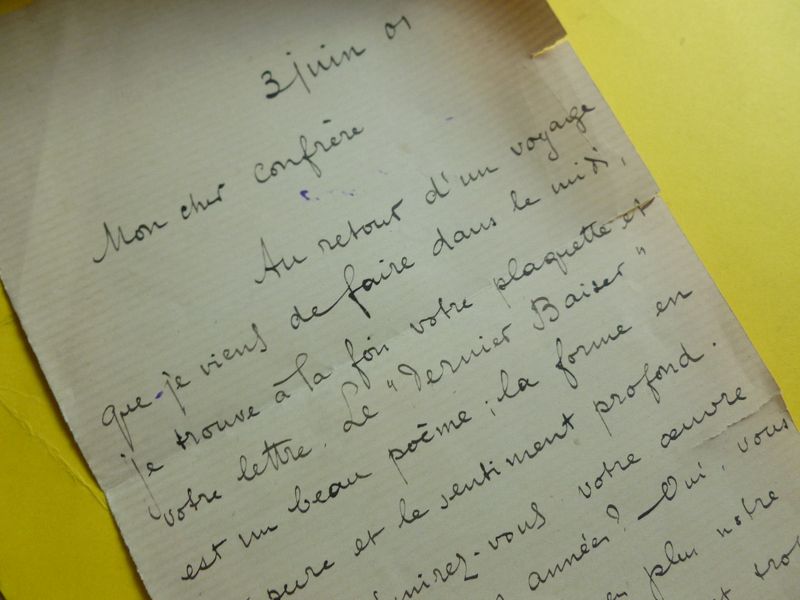 3 juin 01
Mon cher confrère
Au retour d'un voyage
que je viens de faire dans le midi,
je trouve à la fois votre plaquette et
votre lettre. Le "Dernier Baiser"
est un beau poème ; la forme en
pure et le sentiment profond.
-vous votre œuvre
années? – Oui, vous
plus notre